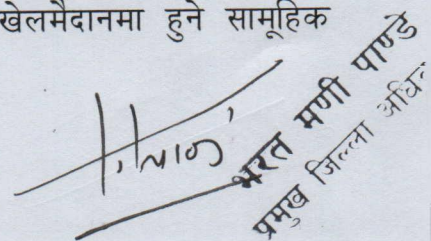 खेलमैदानमा हुने सामूहिक
भरत मणी पाण्डे
प्रमुख जिल्ला